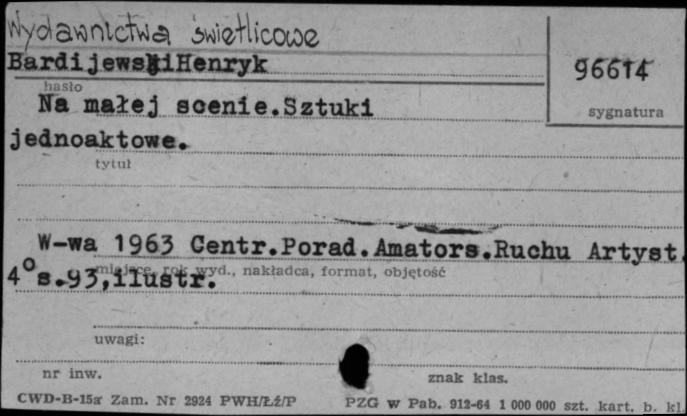 Wydawnictwa świetlicowe
Bardijewski Henryk
96614
hasło
Na małej scenie. Sztuki
sygnatura
jednoaktowe.
tytuł
W-wa 1963 Centr.Porad.Amators.Ruchu Artyst.
miejsce, rok wyd., nakładca, format, objętość
4° s.93,ilustr.
uwagi:
nr inw.
znak klas.
CWD-B-15a Zam. Nr 2924 PWH/Łź/P
PZG w Pab. 912-64 1 000 000 szt. kart. b. kl.